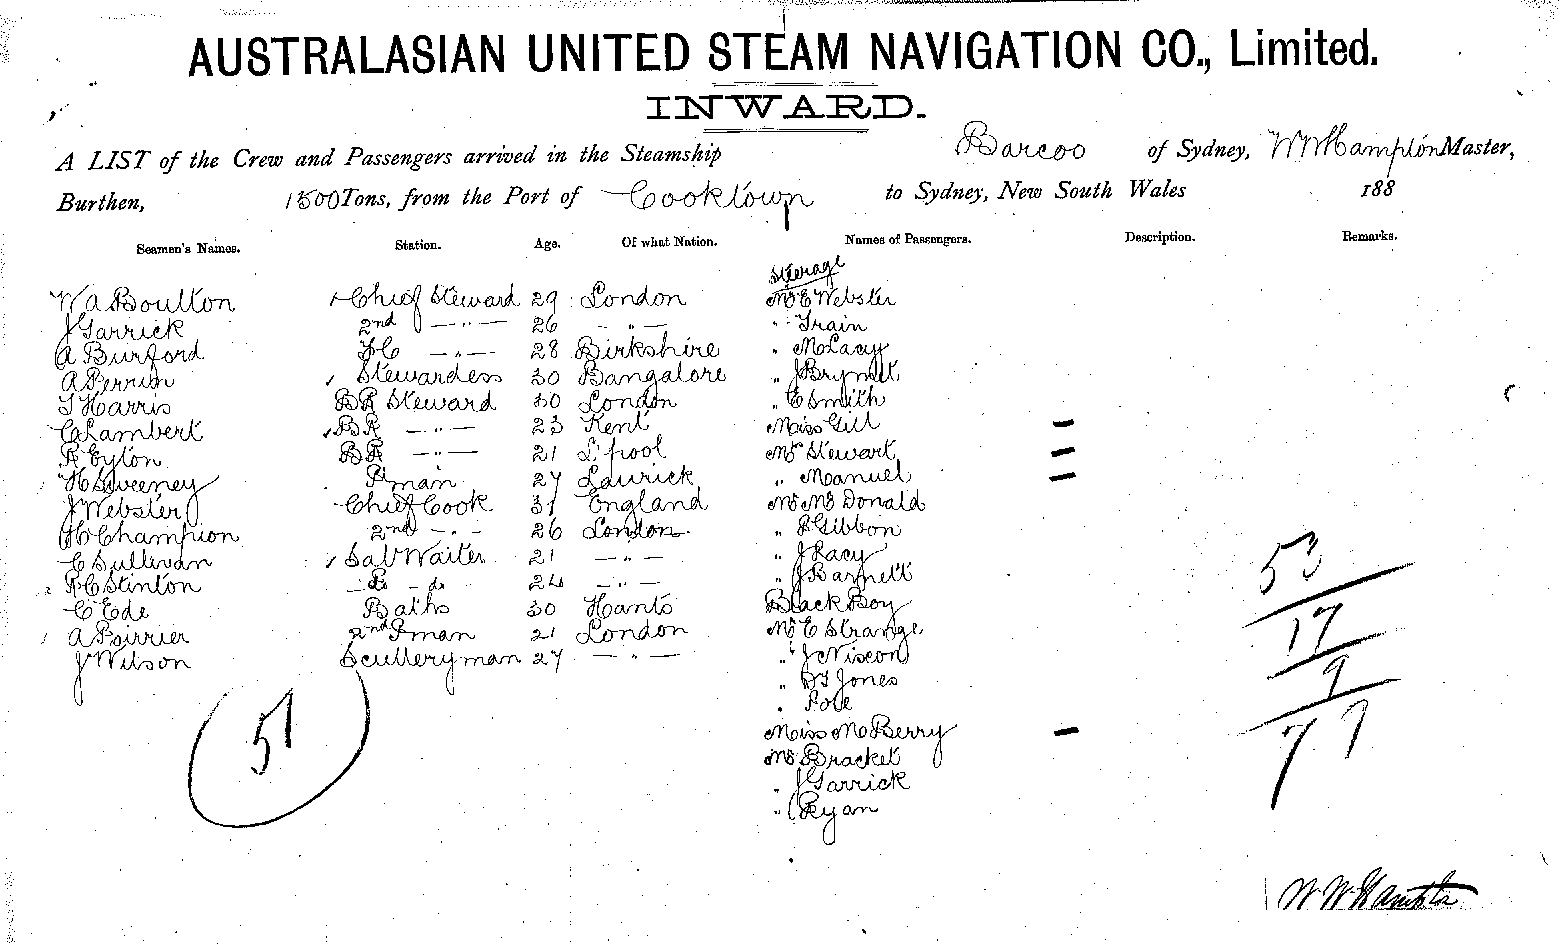 AUSTRALASIAN UNITED STEAM NAVIGATION CO., Limited.
INWARD.
A LIST of the Crew and Passengers arrived in the Steamship Barcoo of Sydney, W W Hampton Master,
Burthen, 1500 Tons, from the Port of Cooktown to Sydney, New South Wales 188
Seamen's Names. Station. Age. Of what Nation. Names of Passengers. Description. Remarks.
Steerage
W A Boulton Chief Steward 29 London Mr E Webster
J Garrick 2nd — " — 26 — " — " Train
A Burford FC — " — 28 Birkshire " McLacy
A Perrim Stewardess 30 Bangalore " J
T Harris BR Steward 30 London " E Smith
C Lambert BR — " — 23 Kent Miss Gill —
R Eyton BR — " — 21 L'pool Mrs Stewart —
H Sweeney P'man 27 " Manuel —
J Webster Chief Cook 31 England Mr McDonald
H Champion 2nd — " — 26 London " Gibbon
C Sullivan Sal Waiter 21 — " — " J Lacy
R C Stinton — " — do 24 — " — " J Barnett
C Ede Baths 30 Hants Black Boy
A Poirrier 2nd P man 21 London Mr E Strange
J Wilson Sculleryman 27 — " — " J Niscon
" Jones
" Pole
Miss McBerry —
Mr Bracket
" J Garrick
" Ryan
51
53
17
9
77
W W Hampton